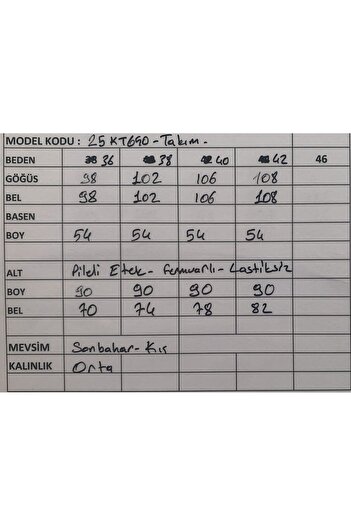 MODEL KODU : 25KT690-Takım.
BEDEN 36 38 40 42 46
GÖĞÜS 98 102 106 108
BEL 98 102 106 108
BASEN
BOY 54 54 54 54
ALT Pileli Etek - Fermuarlı - Lastiksiz
BOY 90 90 90 90
BEL 70 74 78 82
MEVSİM Sonbahar - Kış
KALINLIK Orta